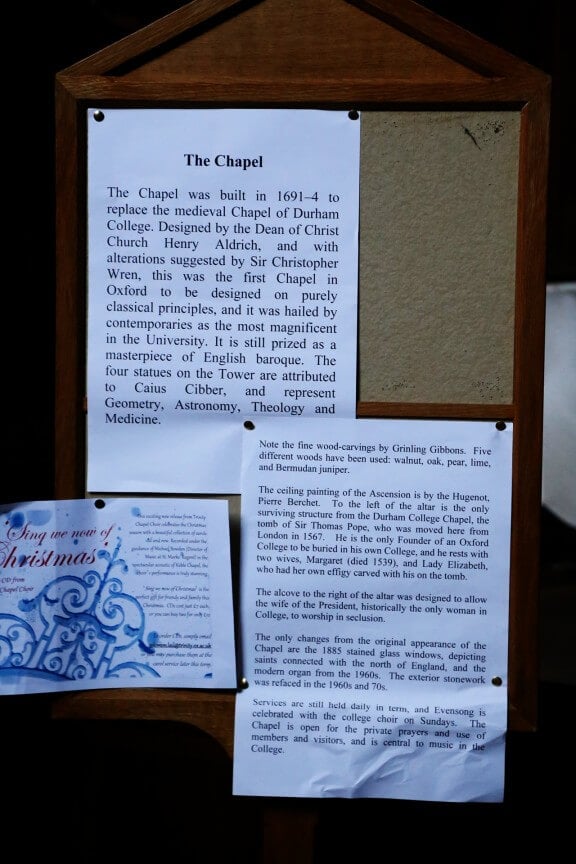 The Chapel
The Chapel was built in 1691–4 to
replace the medieval Chapel of Durham
College. Designed by the Dean of Christ
Church Henry Aldrich, and with
alterations suggested by Sir Christopher
Wren, this was the first Chapel in
Oxford to be designed on purely
classical principles, and it was hailed by
contemporaries as the most magnificent
in the University. It is still prized as a
masterpiece of English baroque. The
four statues on the Tower are attributed
to Caius Cibber, and represent
Geometry, Astronomy, Theology and
Medicine.
Note the fine wood-carvings by Grinling Gibbons. Five
different woods have been used: walnut, oak, pear, lime,
and Bermudan juniper.
The ceiling painting of the Ascension is by the Hugenot,
Pierre Berchet. To the left of the altar is the only
surviving structure from the Durham College Chapel, the
tomb of Sir Thomas Pope, who was moved here from
London in 1567. He is the only Founder of an Oxford
College to be buried in his own College, and he rests with
two wives, Margaret (died 1539), and Lady Elizabeth,
who had her own effigy carved with his on the tomb.
The alcove to the right of the altar was designed to allow
the wife of the President, historically the only woman in
College, to worship in seclusion.
The only changes from the original appearance of the
Chapel are the 1885 stained glass windows, depicting
saints connected with the north of England, and the
modern organ from the 1960s. The exterior stonework
was refaced in the 1960s and 70s.
Services are still held daily in term, and Evensong is
celebrated with the college choir on Sundays. The
Chapel is open for the private prayers and use of
members and visitors, and is central to music in the
College.
Sing we now of
Christmas
CD from
Chapel Choir
exciting new release from Trinity
Chapel Choir celebrates the Christmas
season with a beautiful collection of carols
old and new. Recorded under the
guidance of Michael
Music at St
spectacular acoustic of Keble Chapel, the
Choir's performance is truly stunning.
"Sing we now of Christmas" is the
perfect gift for friends and family this
Christmas. CDs cost just £7 each,
or you can buy two for only
order a CD, simply email
or you may purchase them at the
carol service later this term.